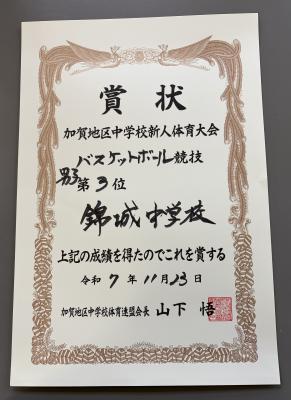 賞状
加賀地区中学校新人体育大会
バスケットボール競技
男子第3位
錦城中学校
上記の成績を得たのでこれを賞する
令和7年11月13日
加賀地区中学校体育連盟会長 山下 悟